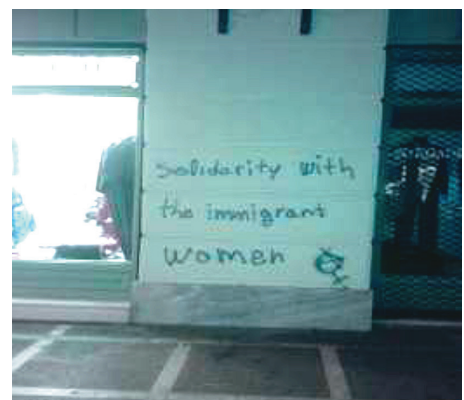 solidarity with
the immigrant
women